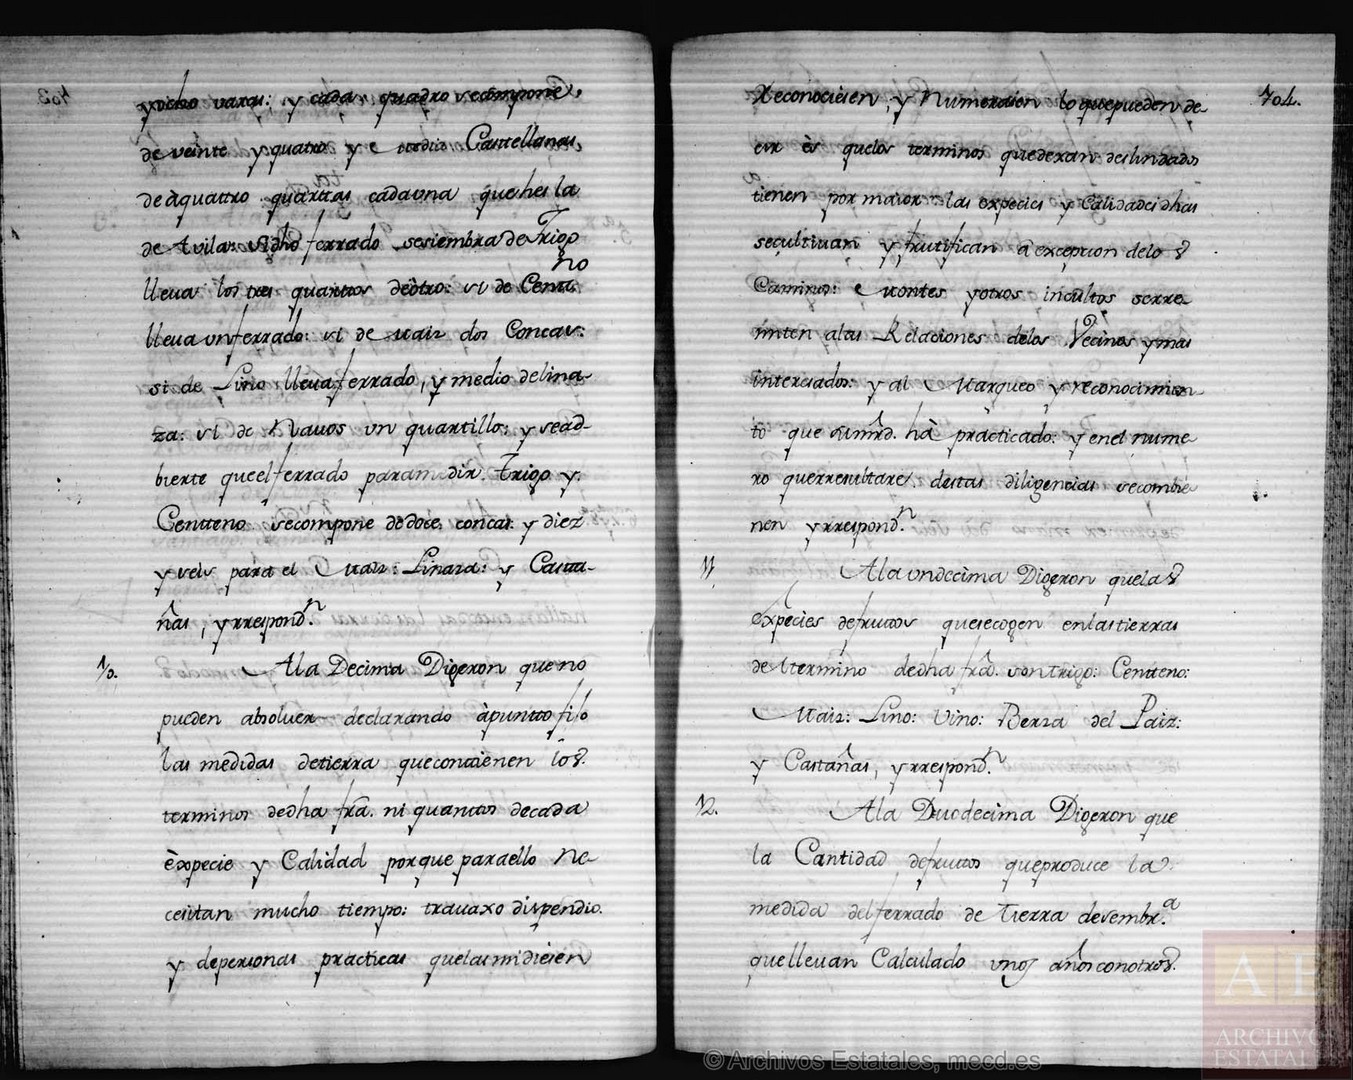 yocho varas: y cada quadro secompone,
de veinte yquatro y e media Castellanas,
de àquattro quartas cadauna quehes la
de Avila: sidho ferrado sesiembra de Trigo
lleua los tres quartos deòtro: si de Centno
lleua unferrado: si de Maiz dos Concas:
si de Lino lleuaferrado, y medio delina-
za: si de Nauos un quartillo: y sead-
bierte queelferrado paramedir Trigo y
Centteno secompone dedoce concas y diez
yseis para el Maiz: Linaza: y Casta-
ñas, yrrespond.n
10. Ala Decima Digeron que no
pueden absoluer declarando àpuntto fijo
las medidas detierra quecontienen los
terminos dedha frâ. ni quanttos decada
èxpecie y Calidad porque paraello Ne-
cesitan mucho tiempo: trauaxo dispendio.
y depersonas practicas quelasmidiesen
704.
Reconociesen, y Numerasen lo quepueden de-
cir ès quelos terminos quedexan deslindados
tienen por maior las expecies y Calidades dhas
secultiuan y frutifican à excepcion delos
Caminos: Montes yotros incultos serre-
miten alas Relaciones delos Vecinos ymas
interesados: y al Marqueo y reconocimien
to que sumrd. hà practicado: y enel nume-
ro querresultare destas diligencias secombie-
nen yrrespond.n
11. Ala undecima Digeron quelas
expecies defruttos quesecogen enlastierras
deltermino dedha frâ. sontrigo: Centteno:
Maiz: Lino: Vino: Berza del Paiz:
y Castañas, yrrespond.n
12. Ala Duodecima Digeron que
la Cantidad defruttos queproduce la
medida delferrado de Tierra desembr.a
quelleuan Calculado unos años conotros.
© Archivos Estatales, mecd.es
AE
ARCHIVOS
ESTATALES